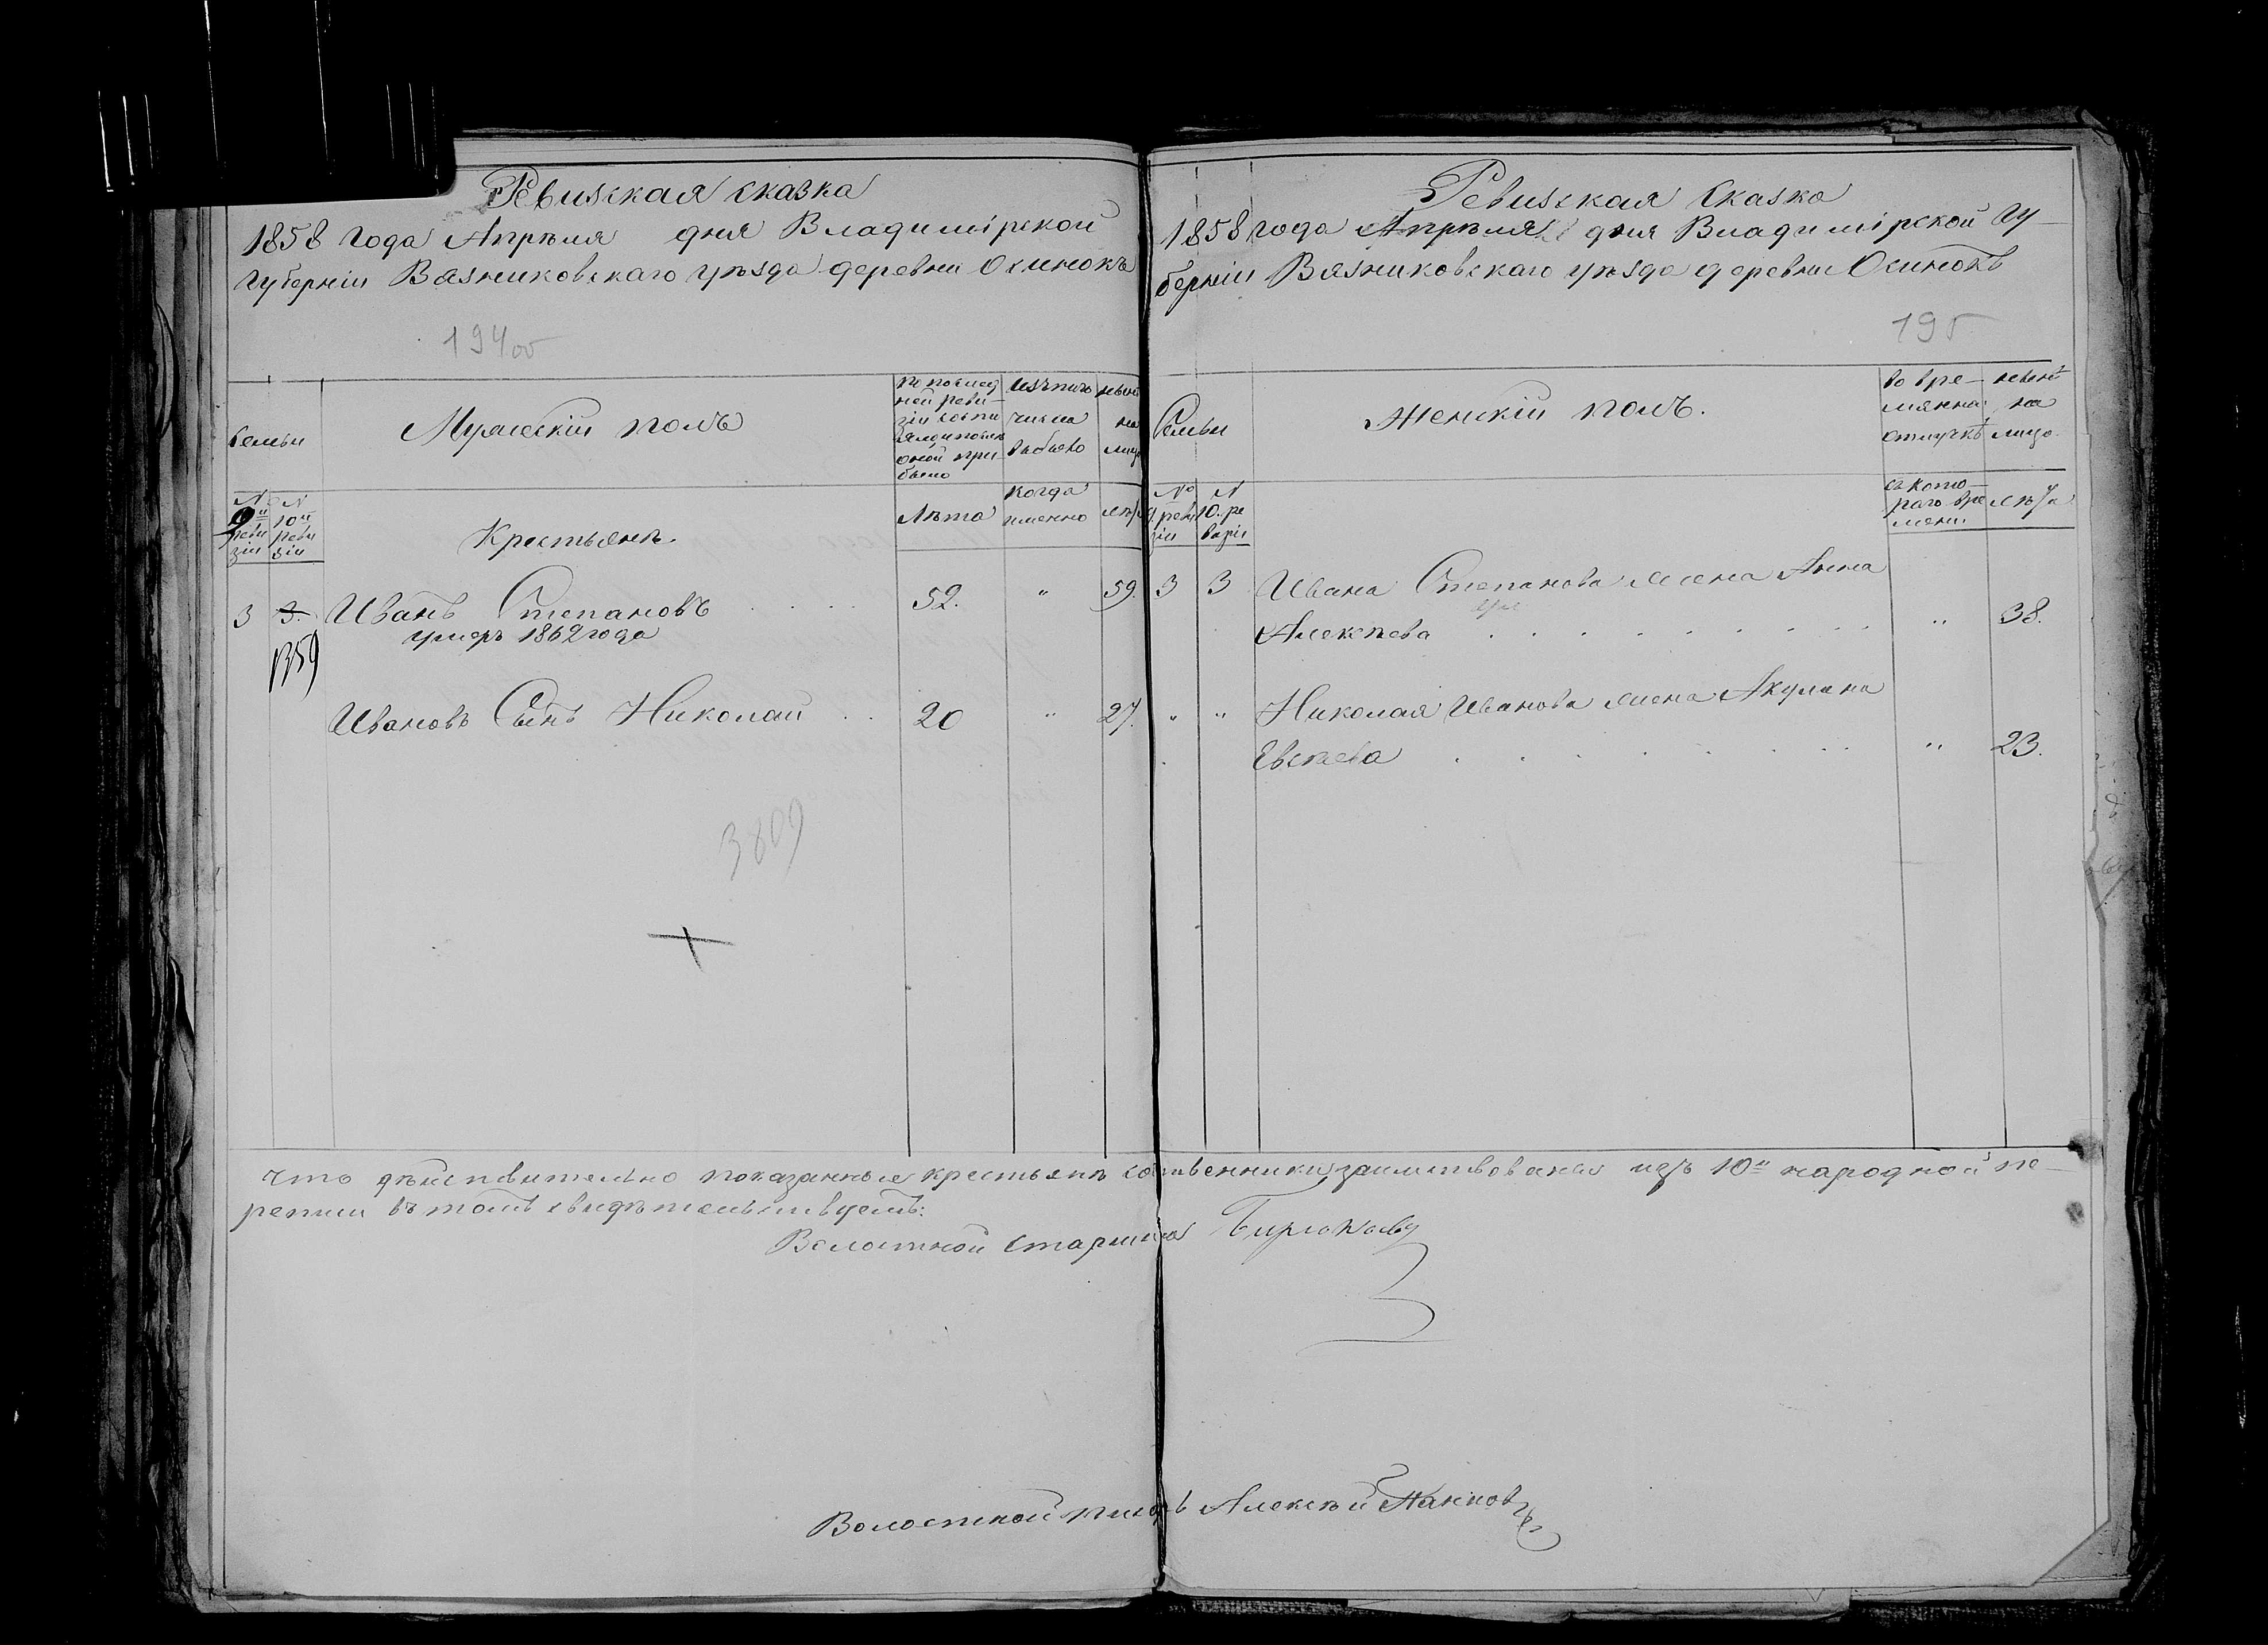 Ревизская сказка
1858 года Апрѣля дня Владимірской
Губерніи Вязниковскаго уѣзда деревни Осинокъ
194об
Семьи
Мужескій полъ
по послед
ней реви-
зіи состо
яло и после
оной при-
было
изъ того
числа
выбыло
ныне
на
лицо
№
9й
реви
зіи
№
10й
реви
зіи
Крестьянъ.
Лѣта
когда
именно
лѣта
3 3. Иванъ Степановъ 52. " 59.
умеръ 1862 года
1359
Ивановъ Сынъ Николай 20 " 27.
3809
Ревизская Сказка
1858 года Апрѣля дня Владимірской Гу-
берніи Вязниковскаго уѣзда деревни Осинокъ
195
Семьи
Женскій полъ.
во вре-
мянной
отлучкѣ
ныне
на
лицо.
№
9 реви
зіи
№
10. ре
визіи
съ кото-
раго вре
мени
лѣта
3 3 Ивана Степанова жена Анна
Алексѣева " 38.
" " Николая Иванова жена Акулина
Евсѣева " 23.
Что дѣйствительно показанные крестьянѣ собственники заимствованы изъ 10й народной пе-
реписи въ томъ свидѣтельствуетъ:
Волостной Старшина Бирюковъ
Волостной писарь Алексѣй